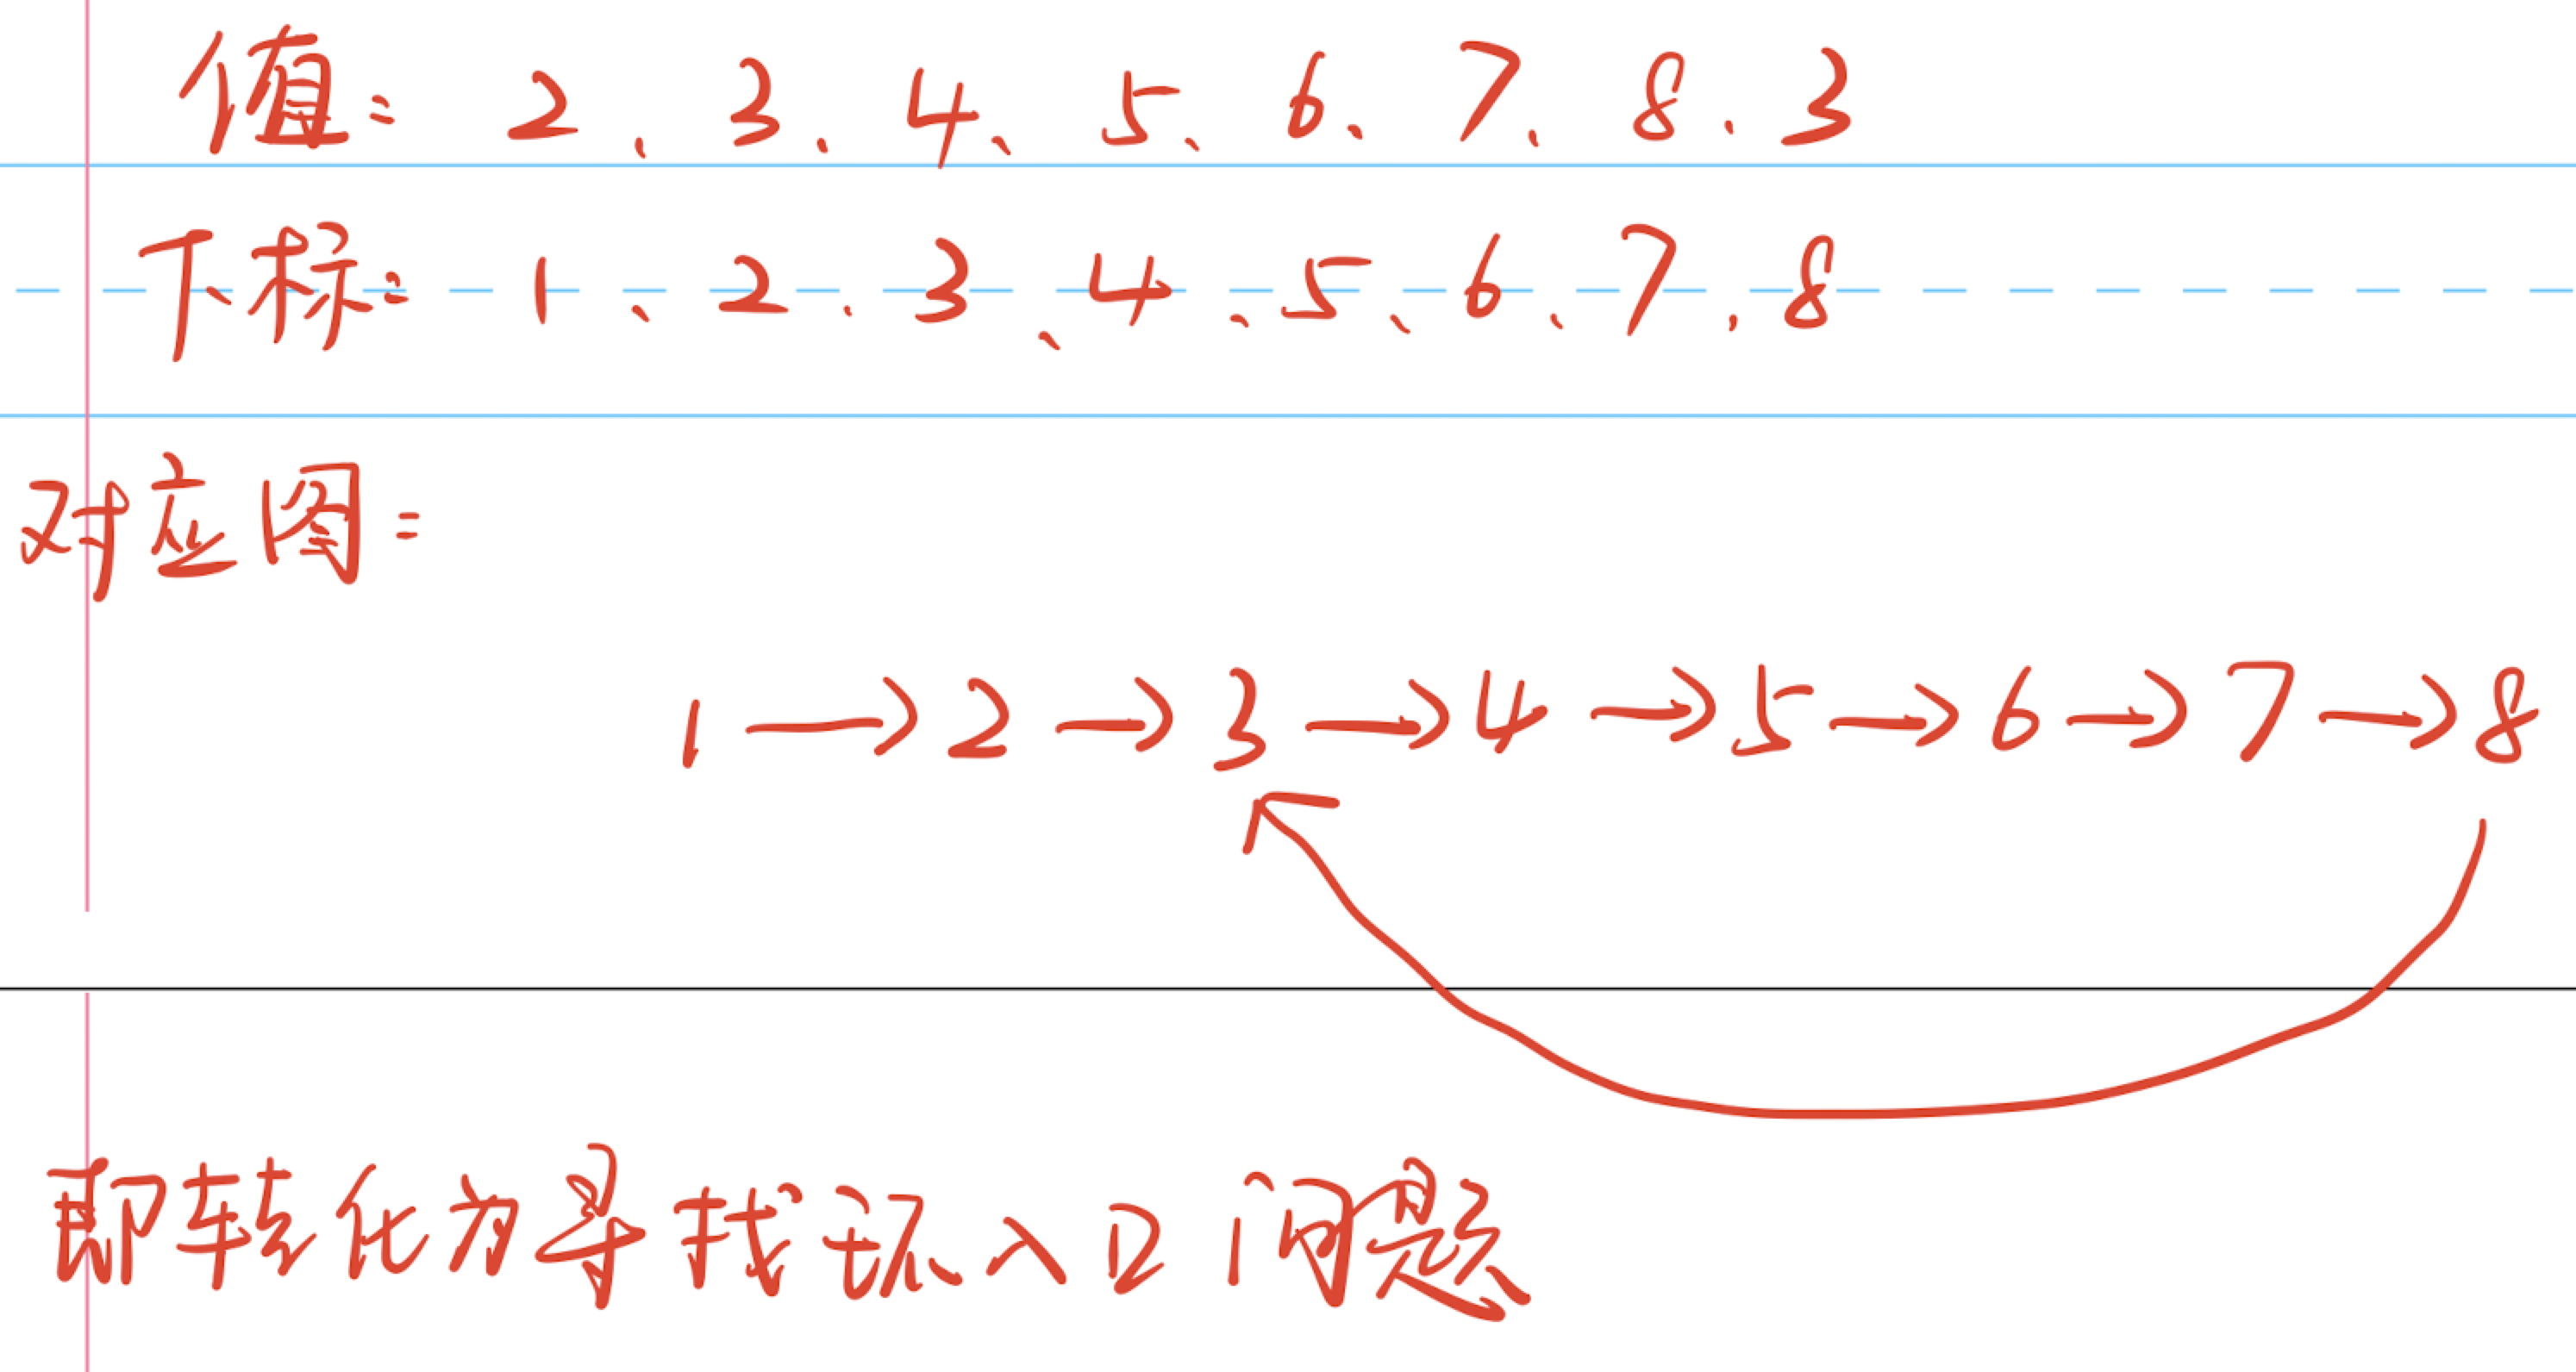 值: 2、3、4、5、6、7、8、3
下标: 1、2、3、4、5、6、7、8
对应图:
1→2→3→4→5→6→7→8
即转化为寻找环入口问题